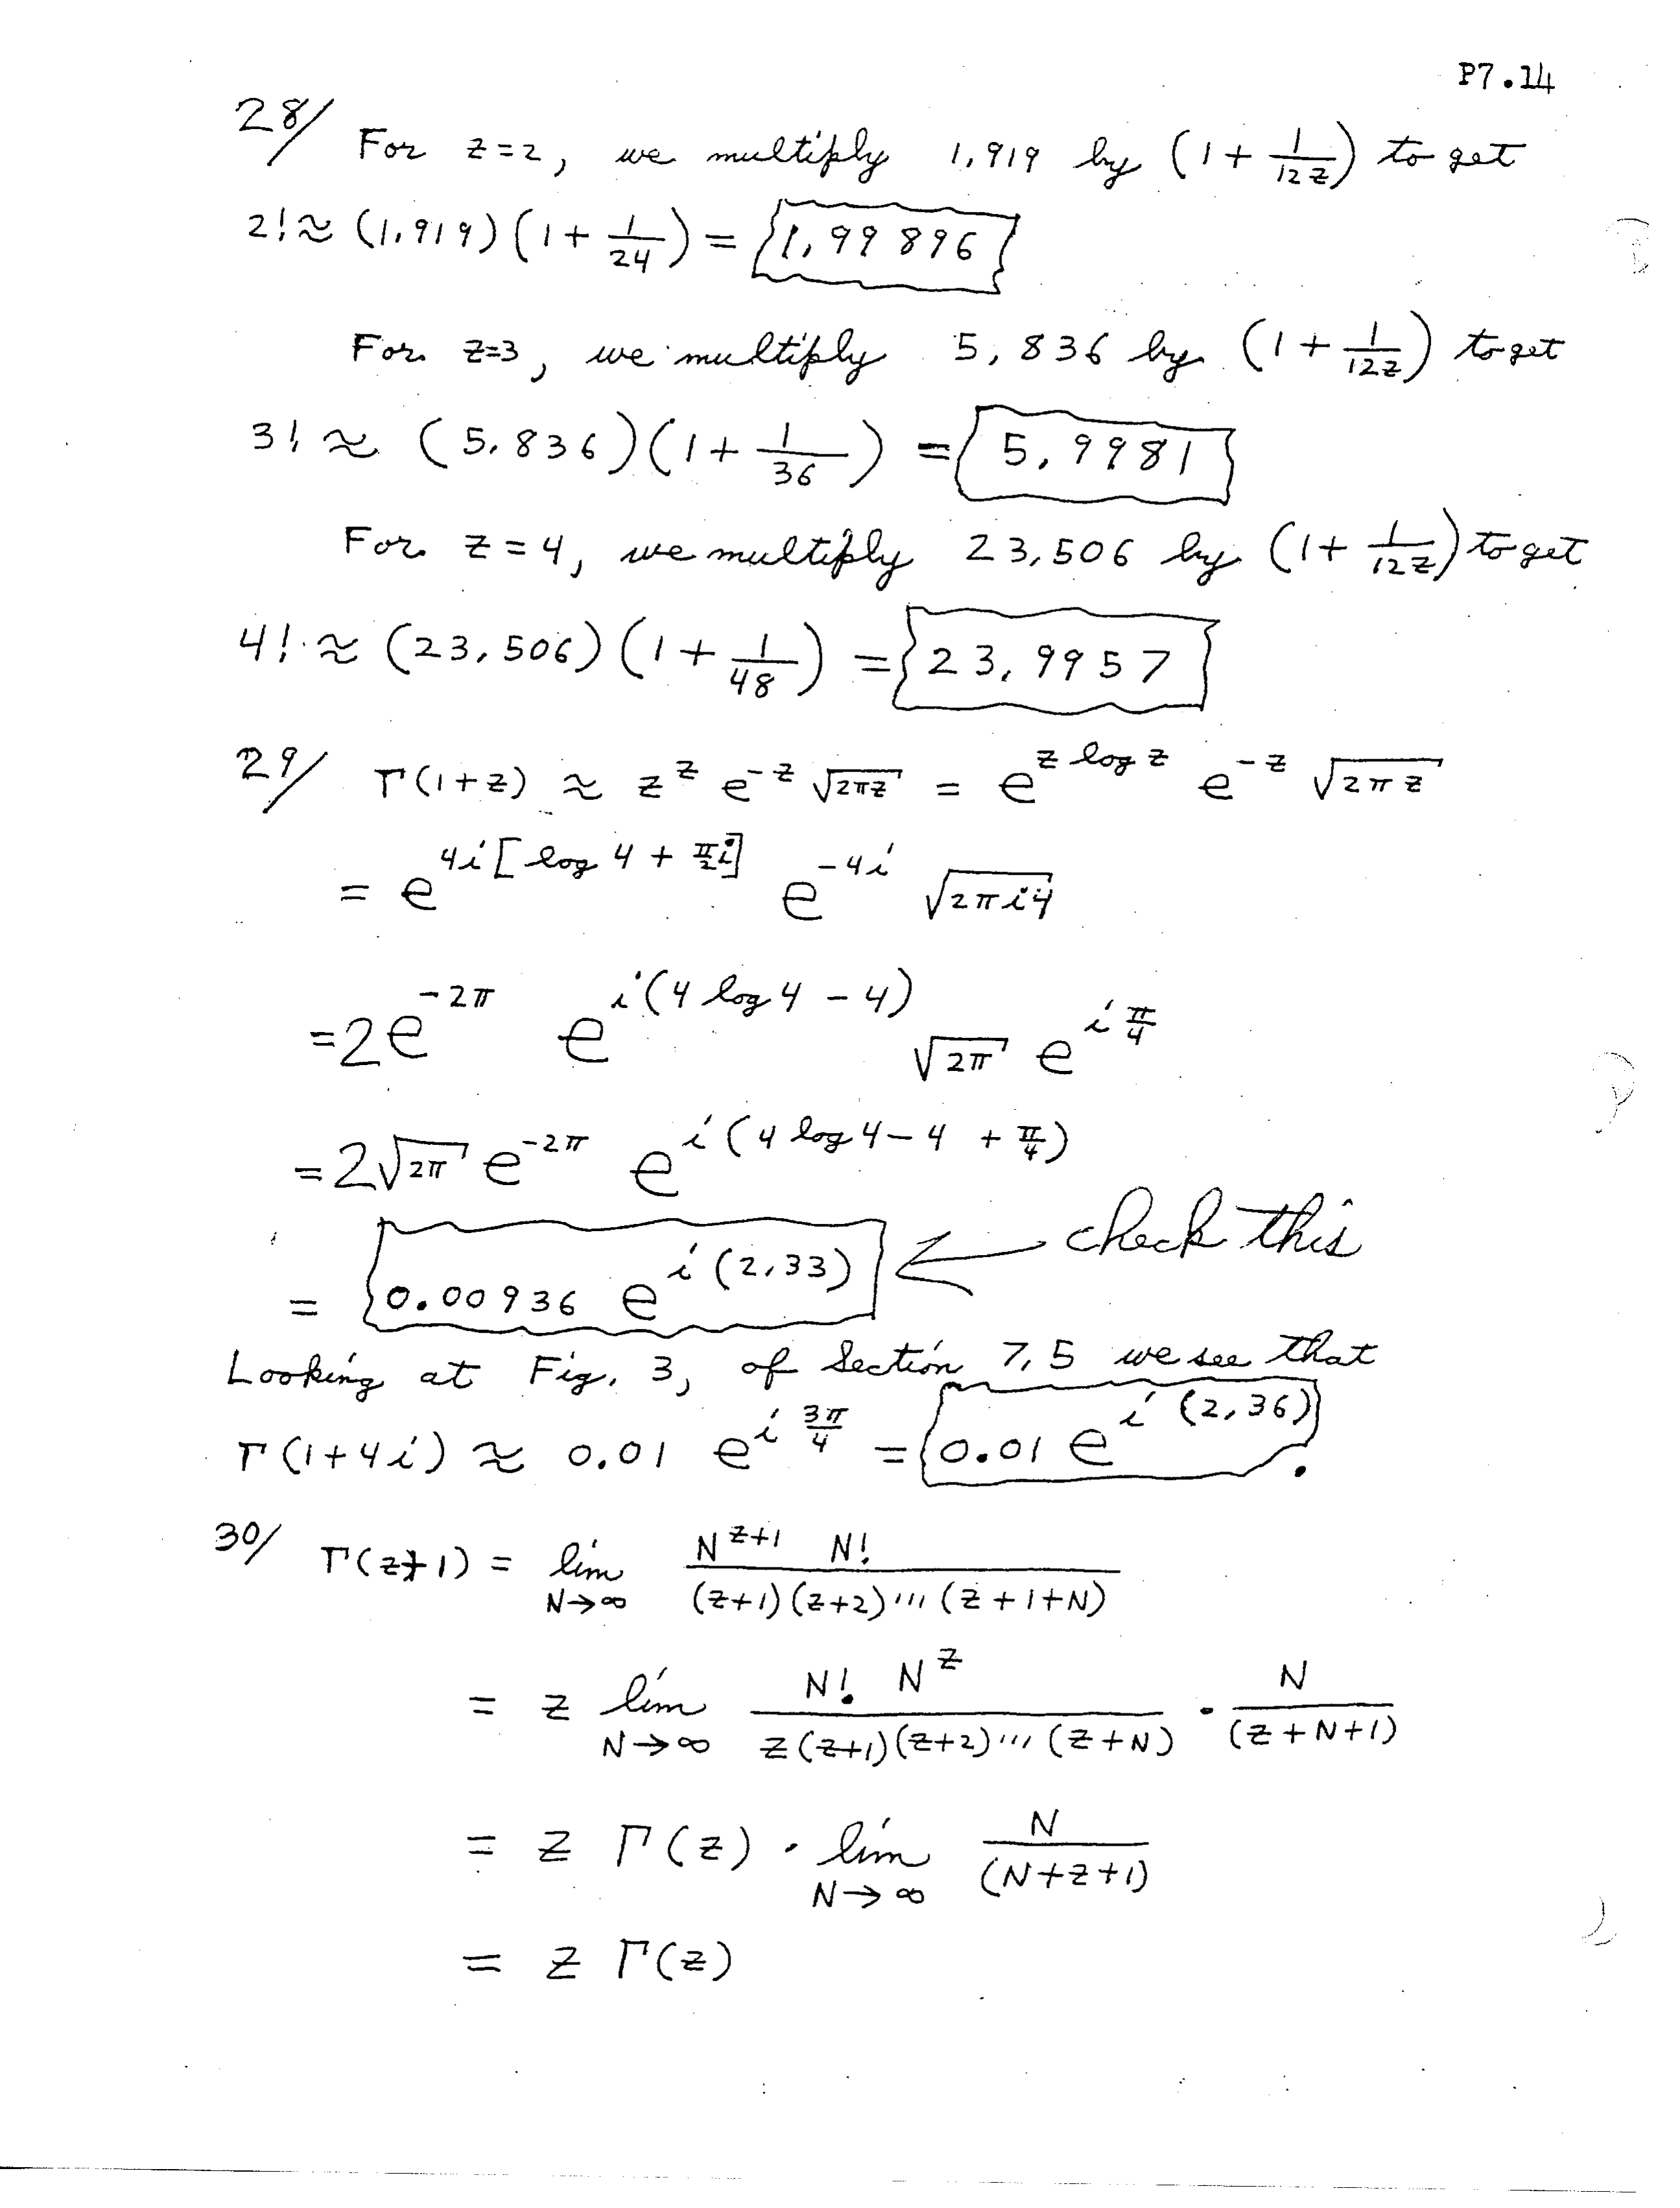 P7.14
28/ For z=2, we multiply 1.919 by (1 + 1/12z) to get
2! ≈ (1.919)(1 + 1/24) = 1.99896
For z=3, we multiply 5.836 by (1 + 1/12z) to get
3! ≈ (5.836)(1 + 1/36) = 5.9981
For z=4, we multiply 23.506 by (1 + 1/12z) to get
4! ≈ (23.506)(1 + 1/48) = 23.9957
29/ Γ(1+z) ≈ z^z e^{-z} √(2πz) = e^{z log z} e^{-z} √(2πz)
= e^{4i[log 4 + π/2 i]} e^{-4i} √(2πi4)
= 2e^{-2π} e^{i(4 log 4 - 4)} √(2π) e^{iπ/4}
= 2√(2π) e^{-2π} e^{i(4 log 4 - 4 + π/4)}
= 0.00936 e^{i(2.33)} ← check this
Looking at Fig. 3, of Section 7.5 we see that
Γ(1+4i) ≈ 0.01 e^{i3π/4} = 0.01 e^{i(2.36)}.
30/ Γ(z+1) = lim N→∞ N^{z+1} N! / (z+1)(z+2)...(z+1+N)
= z lim N→∞ N! N^z / z(z+1)(z+2)...(z+N) · N/(z+N+1)
= z Γ(z) · lim N→∞ N/(N+z+1)
= z Γ(z)